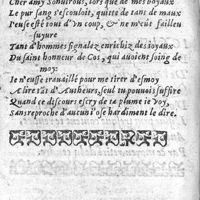 Cher amy Sonutrous, lors que de mes boyaux
Le pur sang s'escouloit, quitte de tant de maux
I'eusse esté tout d'un coup, & ne m'eut failleu
suyure
Tant d'hommes signalez enrichiz des ioyaux
Du saint honneur de Cos, qui auoiēt soing de
moy:
Ie n'eusse trauaillé pour me tirer d'esmoy
A lire tāt d'Autheurs, seul tu pouuois suffire
Quand ce discours escry de ta plume ie voy,
Sans reproche d'aucun i'ose hardiment le dire.